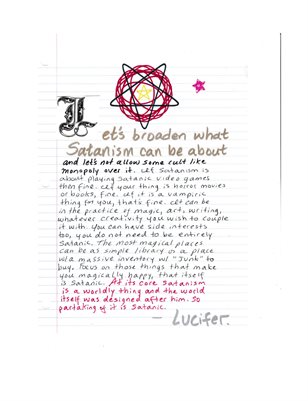 Let's broaden what
Satanism can be about
and let's not allow some cult like
monopoly over it. Let Satanism is
about playing Satanic video games
than fine. Let your thing is horror movies
or books, fine. Let it is a vampiric
thing for you, that's fine. Let can be
in the practice of magic, art, writing,
whatever creativity you wish to couple
it with. You can have side interests
too, you do not need to be entirely
Satanic. The most magical places
can be as simple library or a place
w/ a massive inventory w/ "Junk" to
buy. Focus on those things that make
you magically happy, that itself
is Satanic. At its core Satanism
is a worldly thing and the world
itself was designed after him. So
partaking of it is Satanic.
- Lucifer.